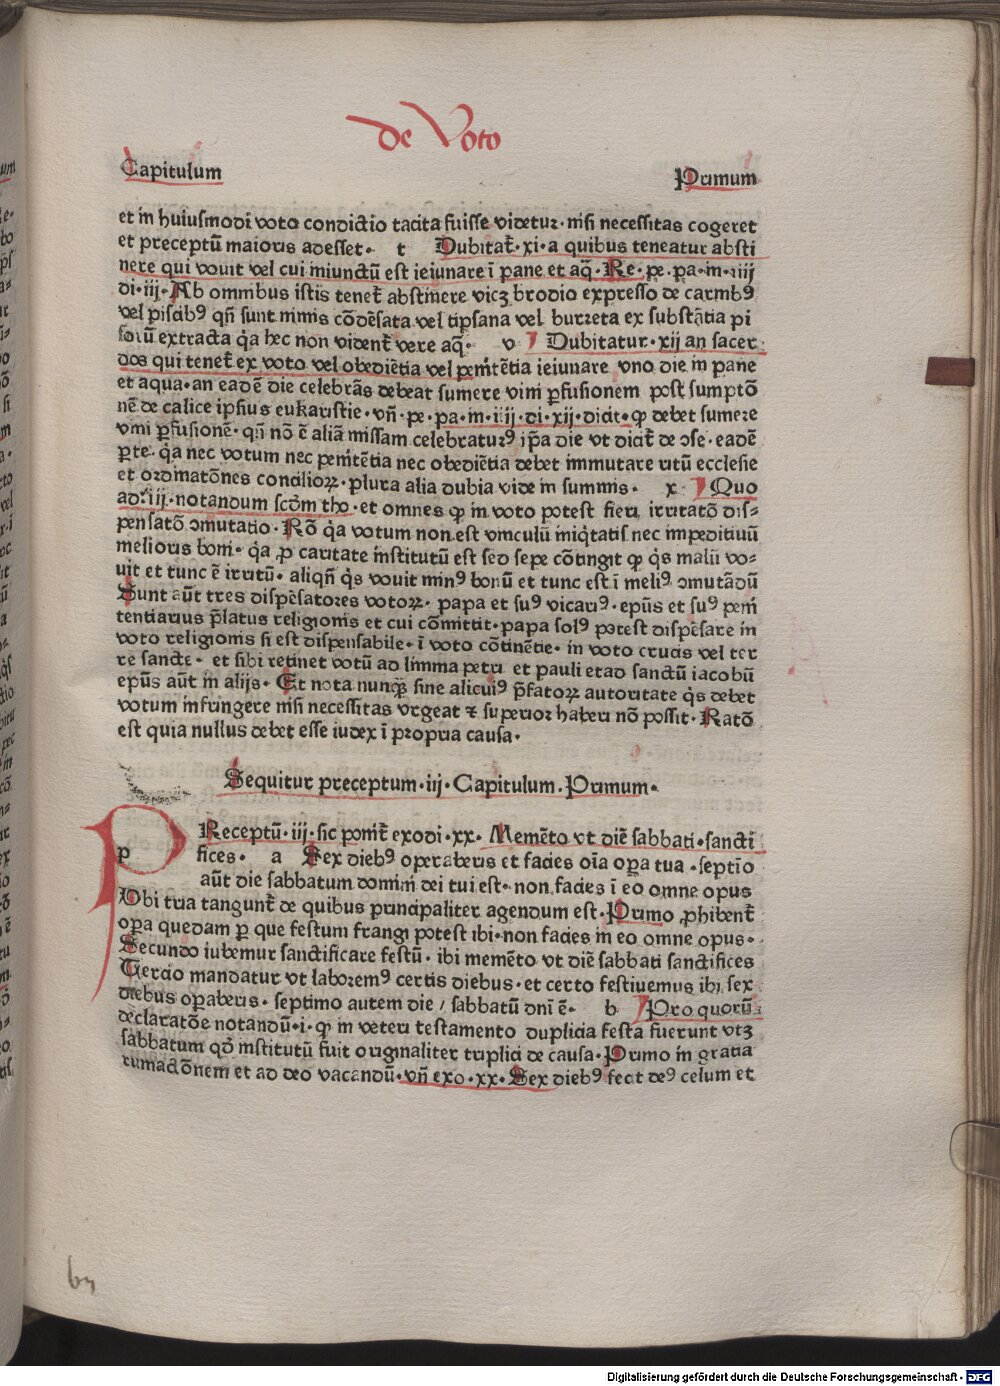 de Voto
Capitulum Primum
et in huiusmodi voto condictio tacita fuisse videtur · nisi necessitas cogeret
et preceptū maioris adesset · t Dubitat̄ · xi · a quibus teneatur absti
nere qui vouit vel cui iniunctū est ieiunare ī pane et aq̄ · Re · pe · pa · m · iiij
di · iij · Ab omnibus istis tenet̄ abstinere vicꝫ brodio expresso de carnibꝰ
vel piscibꝰ qn̄ sunt nimis cōdēsata vel tipsana vel burreta ex substātia pi
sorū extracta q̇a hec non vident̄ vere aq̄ · v Dubitatur · xij an sacer
dos qui tenet̄ ex voto vel obediētia vel penit̄etia ieiunare vno die in pane
et aqua · an eadē die celebrās debeat sumere vini ꝑfusionem post sumptō
nē de calice ipsius eukaristie · vn̄ · pe · pa · m · iiij · di · xij · dicit · ꝙ debet sumere
vini ꝑfusionē · qn̄ nō ē aliā missam celebraturꝰ ip̄a die vt dicit̄ de ↄse · eadē
ꝑte · q̇a nec votum nec penit̄etia nec obediētia debet immutare ritū ecclesie
et ordinatōnes concilioꝝ · plura alia dubia vide in summis · x Quo
ad · iij · notandum scd̄m tho · et omnes ꝙ in voto potest fieri irritatō dis-
pensatō ↄmutatio · Rō q̇a votum non est vinculū iniq̇tatis nec impeditiuū
melioris boni · q̇a ꝓ caritate institutū est sed sepe cōtingit ꝙ q̇s malū vo-
uit et tunc ē irritū · aliqn̄ q̇s vouit minꝰ bonū et tunc est ī meliꝰ ↄmutādū
Sunt aūt tres dispēsatores votoꝝ · papa et suꝰ vicariꝰ · ep̄us et suꝰ peni
tentiarius p̄latus religionis et cui cōmittit · papa solꝰ potest dispēsare in
voto religionis si est dispensabile · ī voto cōtinētie · in voto crucis vel ter
re sancte · et sibi retinet votū ad limina petri et pauli etad sanctū iacobū
ep̄us aūt in alijs · Et nota nunq̄ꝫ sine alicuiꝰ p̄fatoꝝ autoritate q̇s debet
votum infringere nisi necessitas vrgeat ⁊ superior haberi nō possit · Ratō
est quia nullus debet esse iudex ī propria causa ·
Sequitur preceptum · iij · Capitulum · Primum ·
p Receptū · iij · sic ponit̄ exodi · xx · Memēto vt diē sabbati · sancti
fices · a Sex diebꝰ operaberis et facies oīa oꝑa tua · septīo
aūt die sabbatum domini dei tui est · non facies ī eo omne opus
Vbi tria tangunt̄ de quibus principaliter agendum est · Primo ꝓhibent̄
oꝑa quedam ꝑ que festum frangi potest ibi · non facies in eo omne opus ·
Secundo iubemur sanctificare festū · ibi memēto vt diē sabbati sanctifices
Tercio mandatur vt laboremꝰ certis diebus · et certo festiuemus ibi sex
diebus oꝑaberis · septimo autem die / sabbatū dn̄i ē · b Pro quorū
declaratōe notandū · i · ꝙ in veteri testamento duplicia festa fuerunt vtꝫ
sabbatum qd̄ institutū fuit originaliter triplici de causa · Primo in gratia
rumactōnem et ad deo vacandū · vn̄ exo · xx · Sex diebꝰ fecit deꝰ celum et
Digitalisierung gefördert durch die Deutsche Forschungsgemeinschaft - DFG